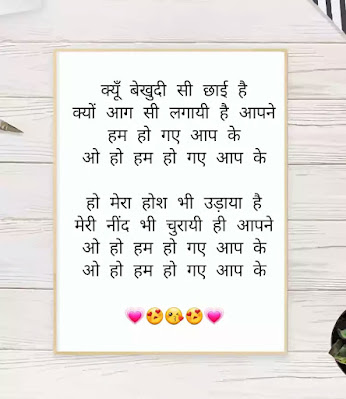 क्यूँ बेखुदी सी छाई है
क्यों आग सी लगायी है आपने
हम हो गए आप के
ओ हो हम हो गए आप के
हो मेरा होश भी उड़ाया है
मेरी नींद भी चुरायी ही आपने
ओ हो हम हो गए आप के
ओ हो हम हो गए आप के
💗😍😘😍💗